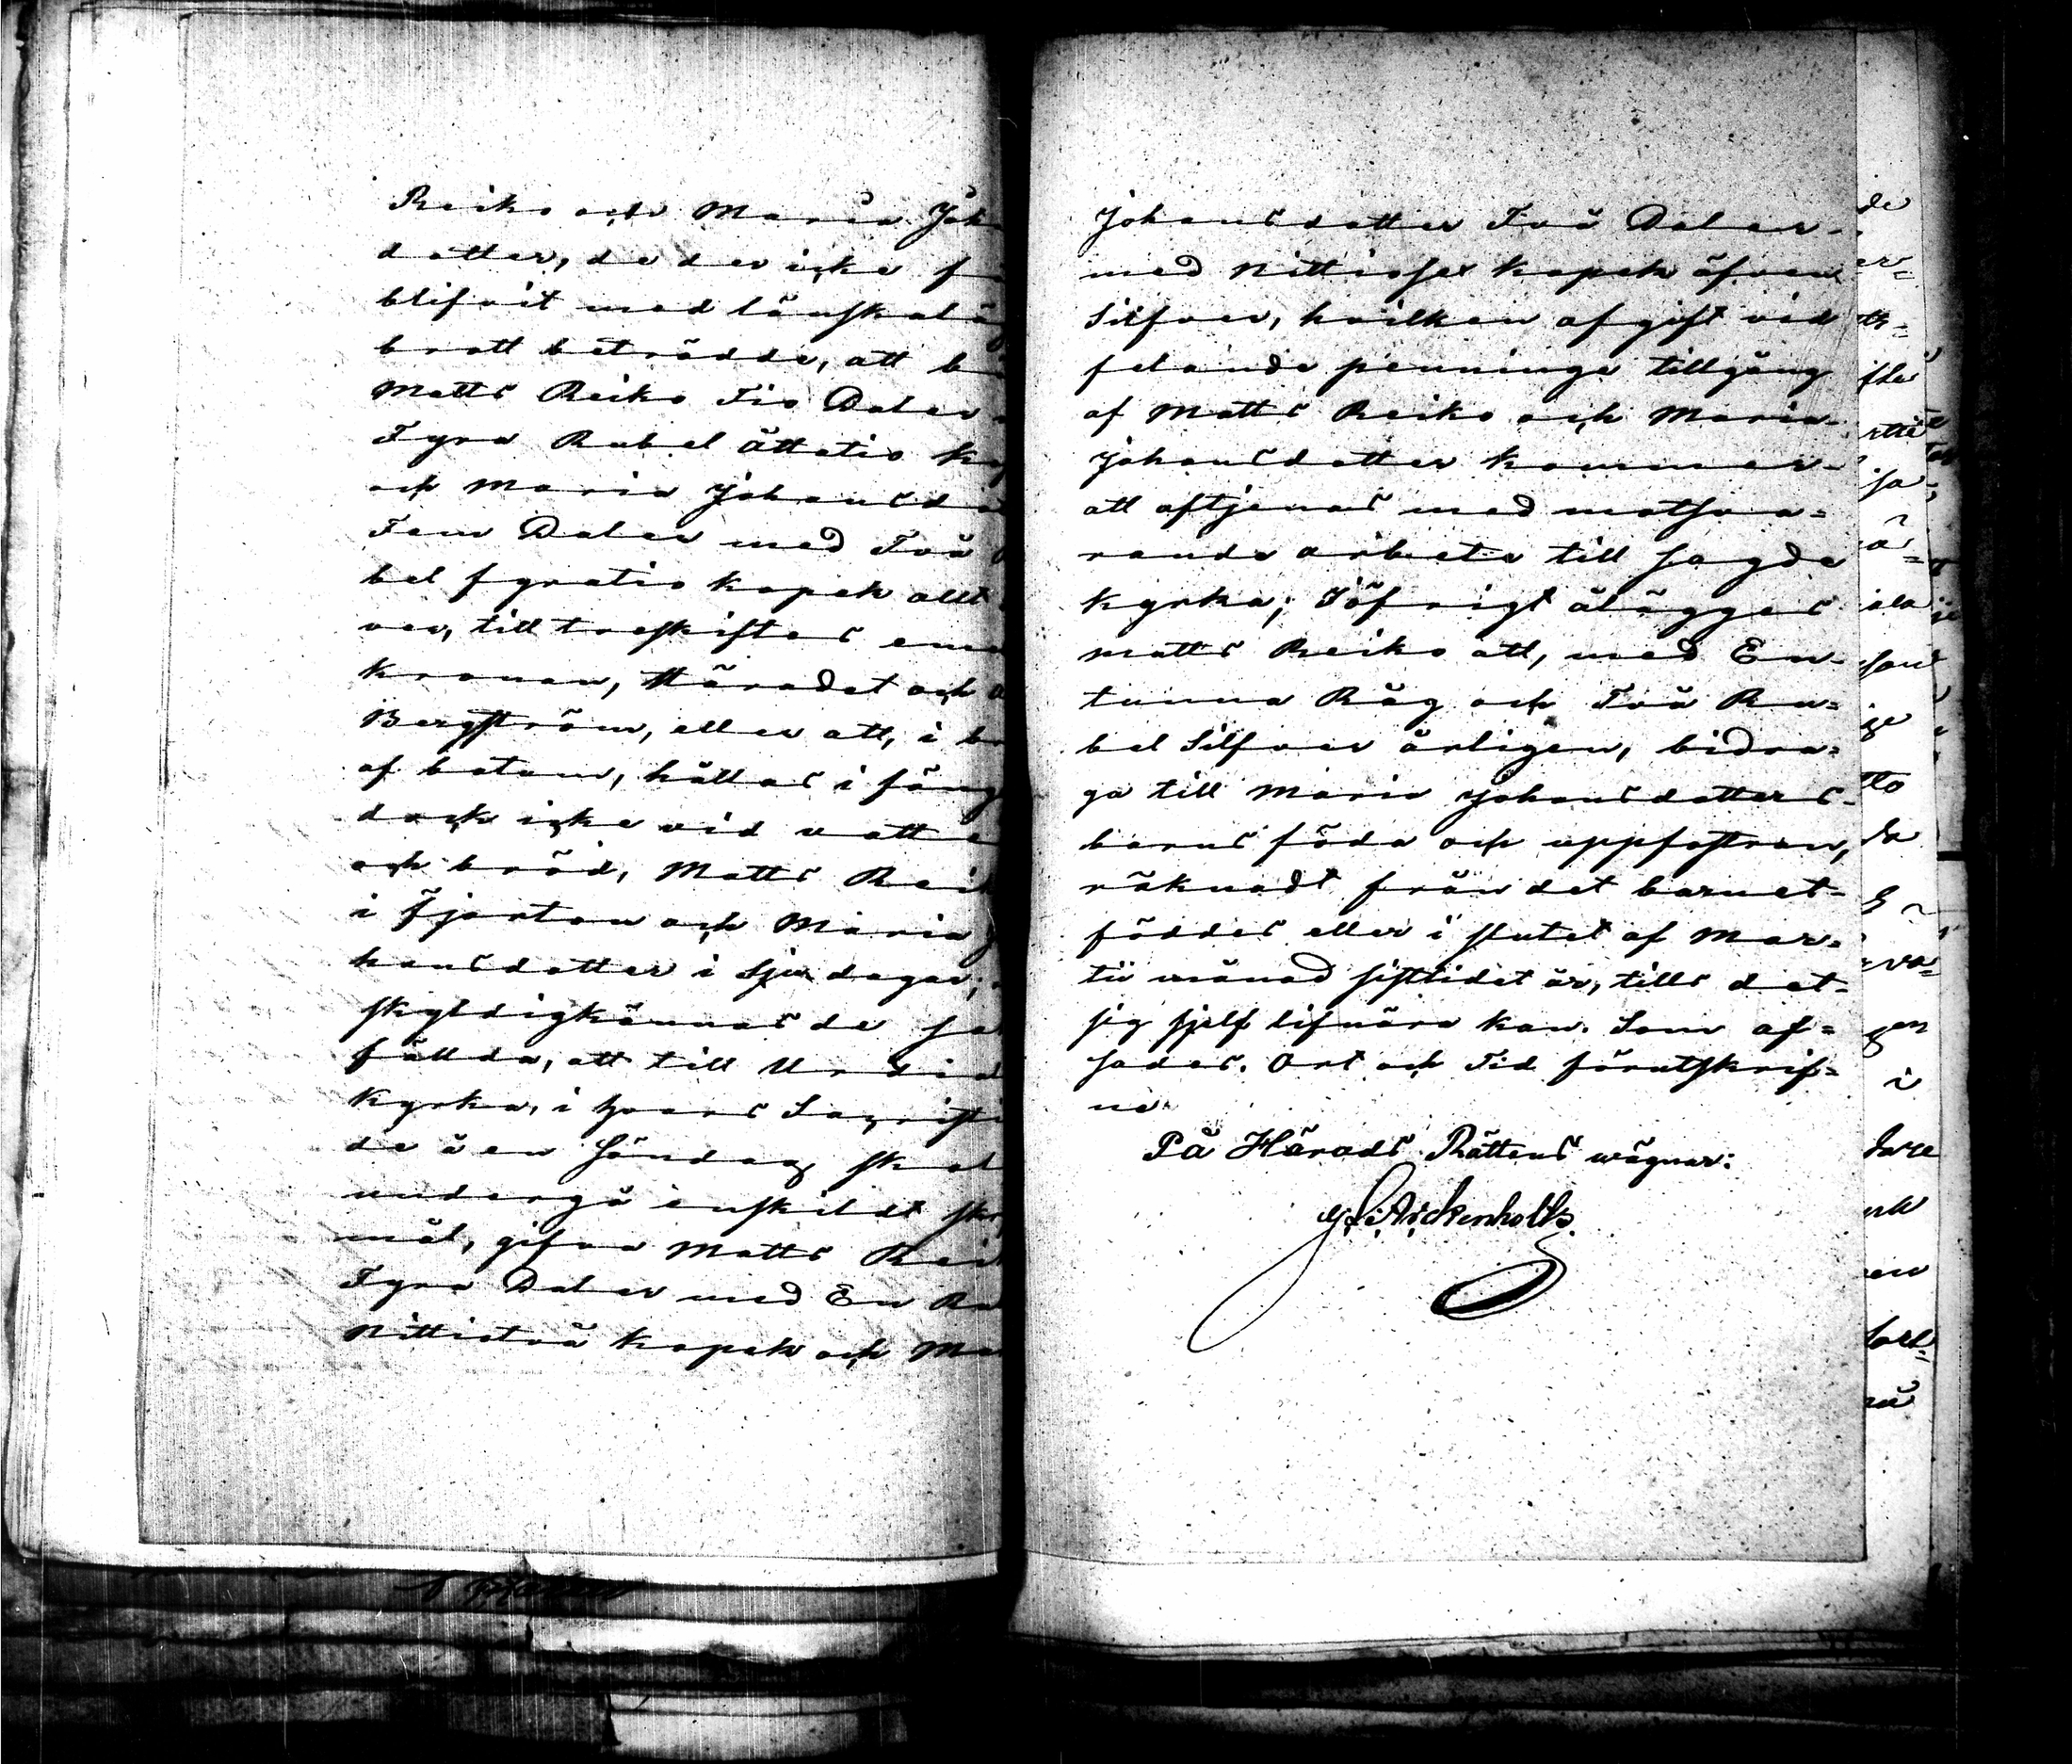 Reiko och Maria Joh
dotter, de der icke f
blifvit med länskalä
brott beträdde, att b
Matts Reiko Tio Daler
Fyra Rubel åttatio ko
och Maria Johansdo
Fem Daler med Två
bel fyratio kopek allt
ver, till treskiftes em
kronan, Häradet och
Bergström, eller att, i br
af botom, hållas i fäng
dock icke vid vatte
och bröd, Matts Rei
i Fjorton och Maria
hansdotter i Sju dagar;
skyldigkännas de så
fällda, att till
kyrka, i hvars Sacristi
de å en Söndag skol
undergå enskildt skr
mål, gifva Matts Rei
Fyra Daler med En Ru
Nittiotvå kopek och Ma
Johansdotter Två Daler
med Nittiosex kopek äfven
Silfver, hvilken afgift vid
felande penninge tillgång
af Matts Reiko och Maria
Johansdotter kommer
att aftjenas med motsva=
rande arbete till sagde
kyrka; I öfrigt ålägges
Matts Reiko att, med En
tunna Råg och Två Ru=
bel Silfver årligen, bidra=
ga till Maria Johansdotters
barns föda och uppfostran,
räknadt från det barnet
föddes eller i slutet af Mar=
tii månad sistlidet år, tills det
sig sjelf lifnära kan. Som af=
sades. Ort och Tid förutskrif=
ne.
På Härads Rättens vägnar:
Arckenholtz